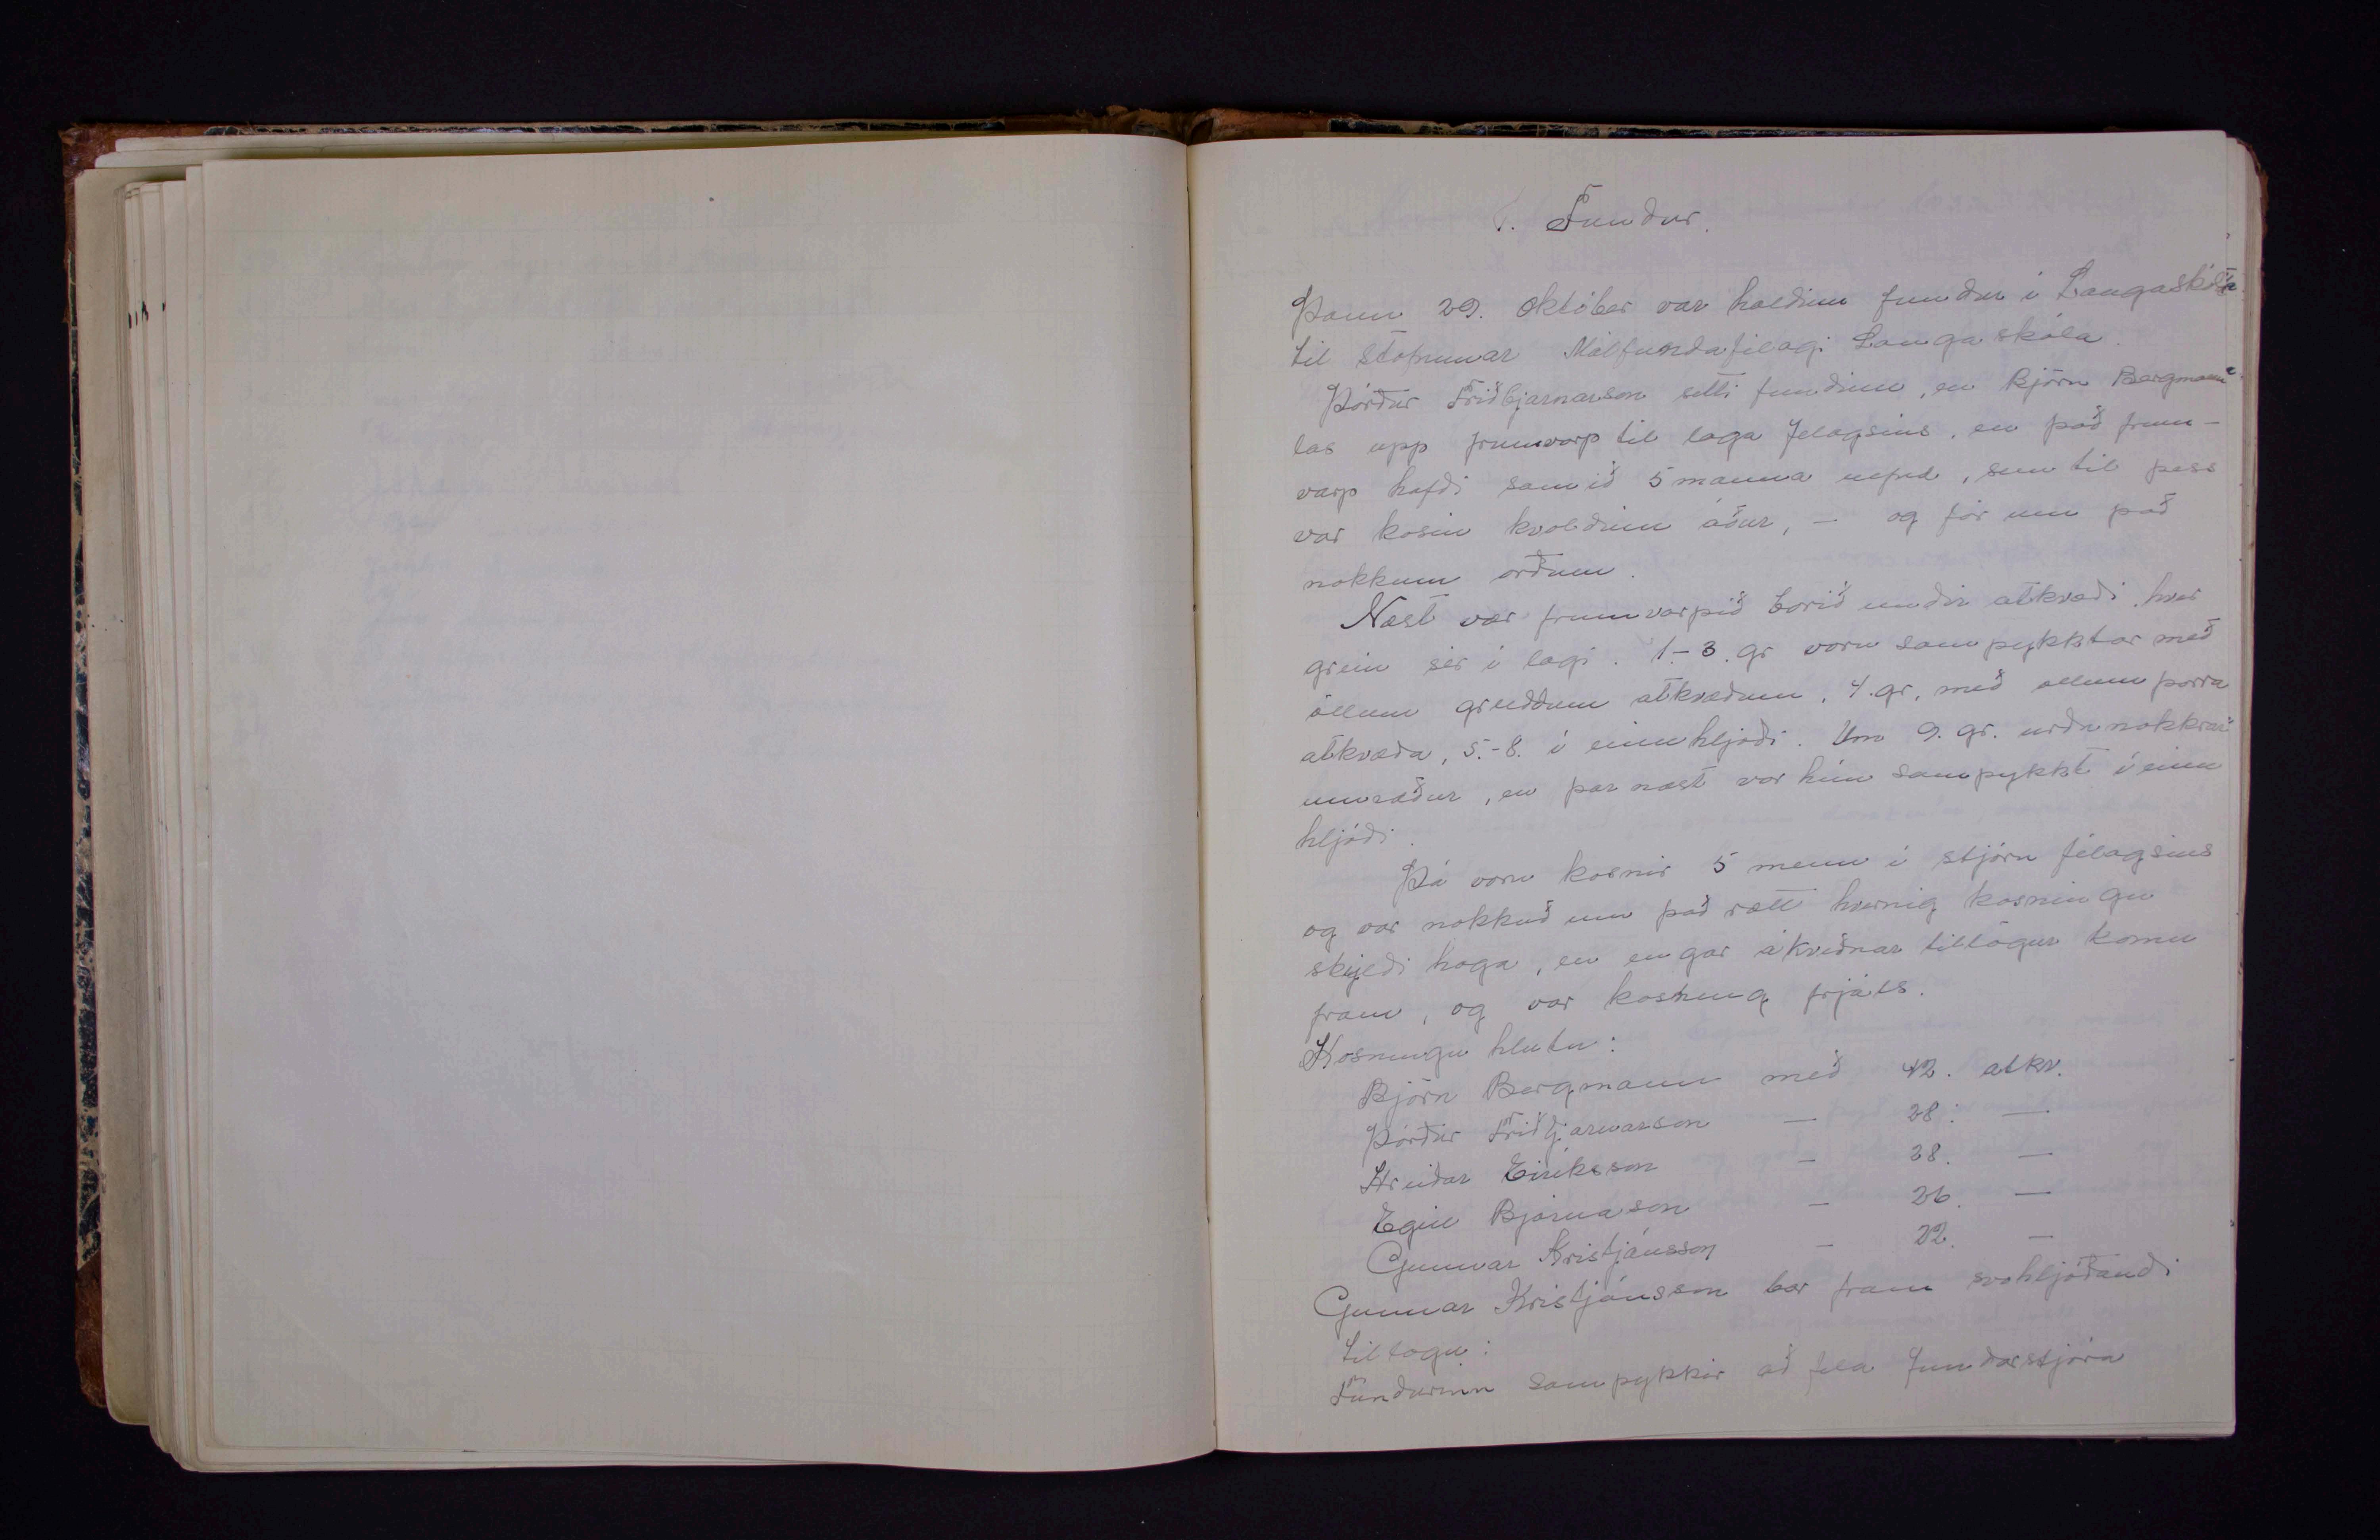 1. Fundur.
Þann 29. Október var haldinn fundur í Laugaskóla
til stofnunar Málfundafélagi Laugaskóla.
Þórður Friðbjarnarson setti fundinn, en Björn Bergmann
las upp frumvarp til laga félagsins, en það frum-
varp hafði samið 5 manna nefnd, sem til þess
var kosin kvoldinu áður, — og fór um það
nokkrum orðum.
Næst var frumvarpið borið undir atkvæði, hver
grein sér í lagi. 1.-3. gr voru samþykktar með
öllum greiddum atkvæðum, 4. gr. með ollum þorra
atkvæða, 5.-8. í einu hljóði. Um 9. gr. urðu nokkrar
umræður, en þar næst var hún samþykkt í einu
hljóði.
Þá voru kosnir 5 menn í stjórn félagsins
og var nokkuð um það rætt hvernig kosningu
skyldi haga, en engar ákveðnar tillögur komu
fram, og var kosning frjáls.
Kosningu hlutu:
Björn Bergmann með 42. atkv.
Þórður Friðbjarnarson — 28. —
Hreiðar Eiríksson — 28. —
Egill Bjarnason — 26. —
Gunnar Kristjánsson — 22. —
Gunnar Kristjánsson bar fram svohljóðandi
tillögu:
Fundurinn samþykkir að fela fundarstjóra